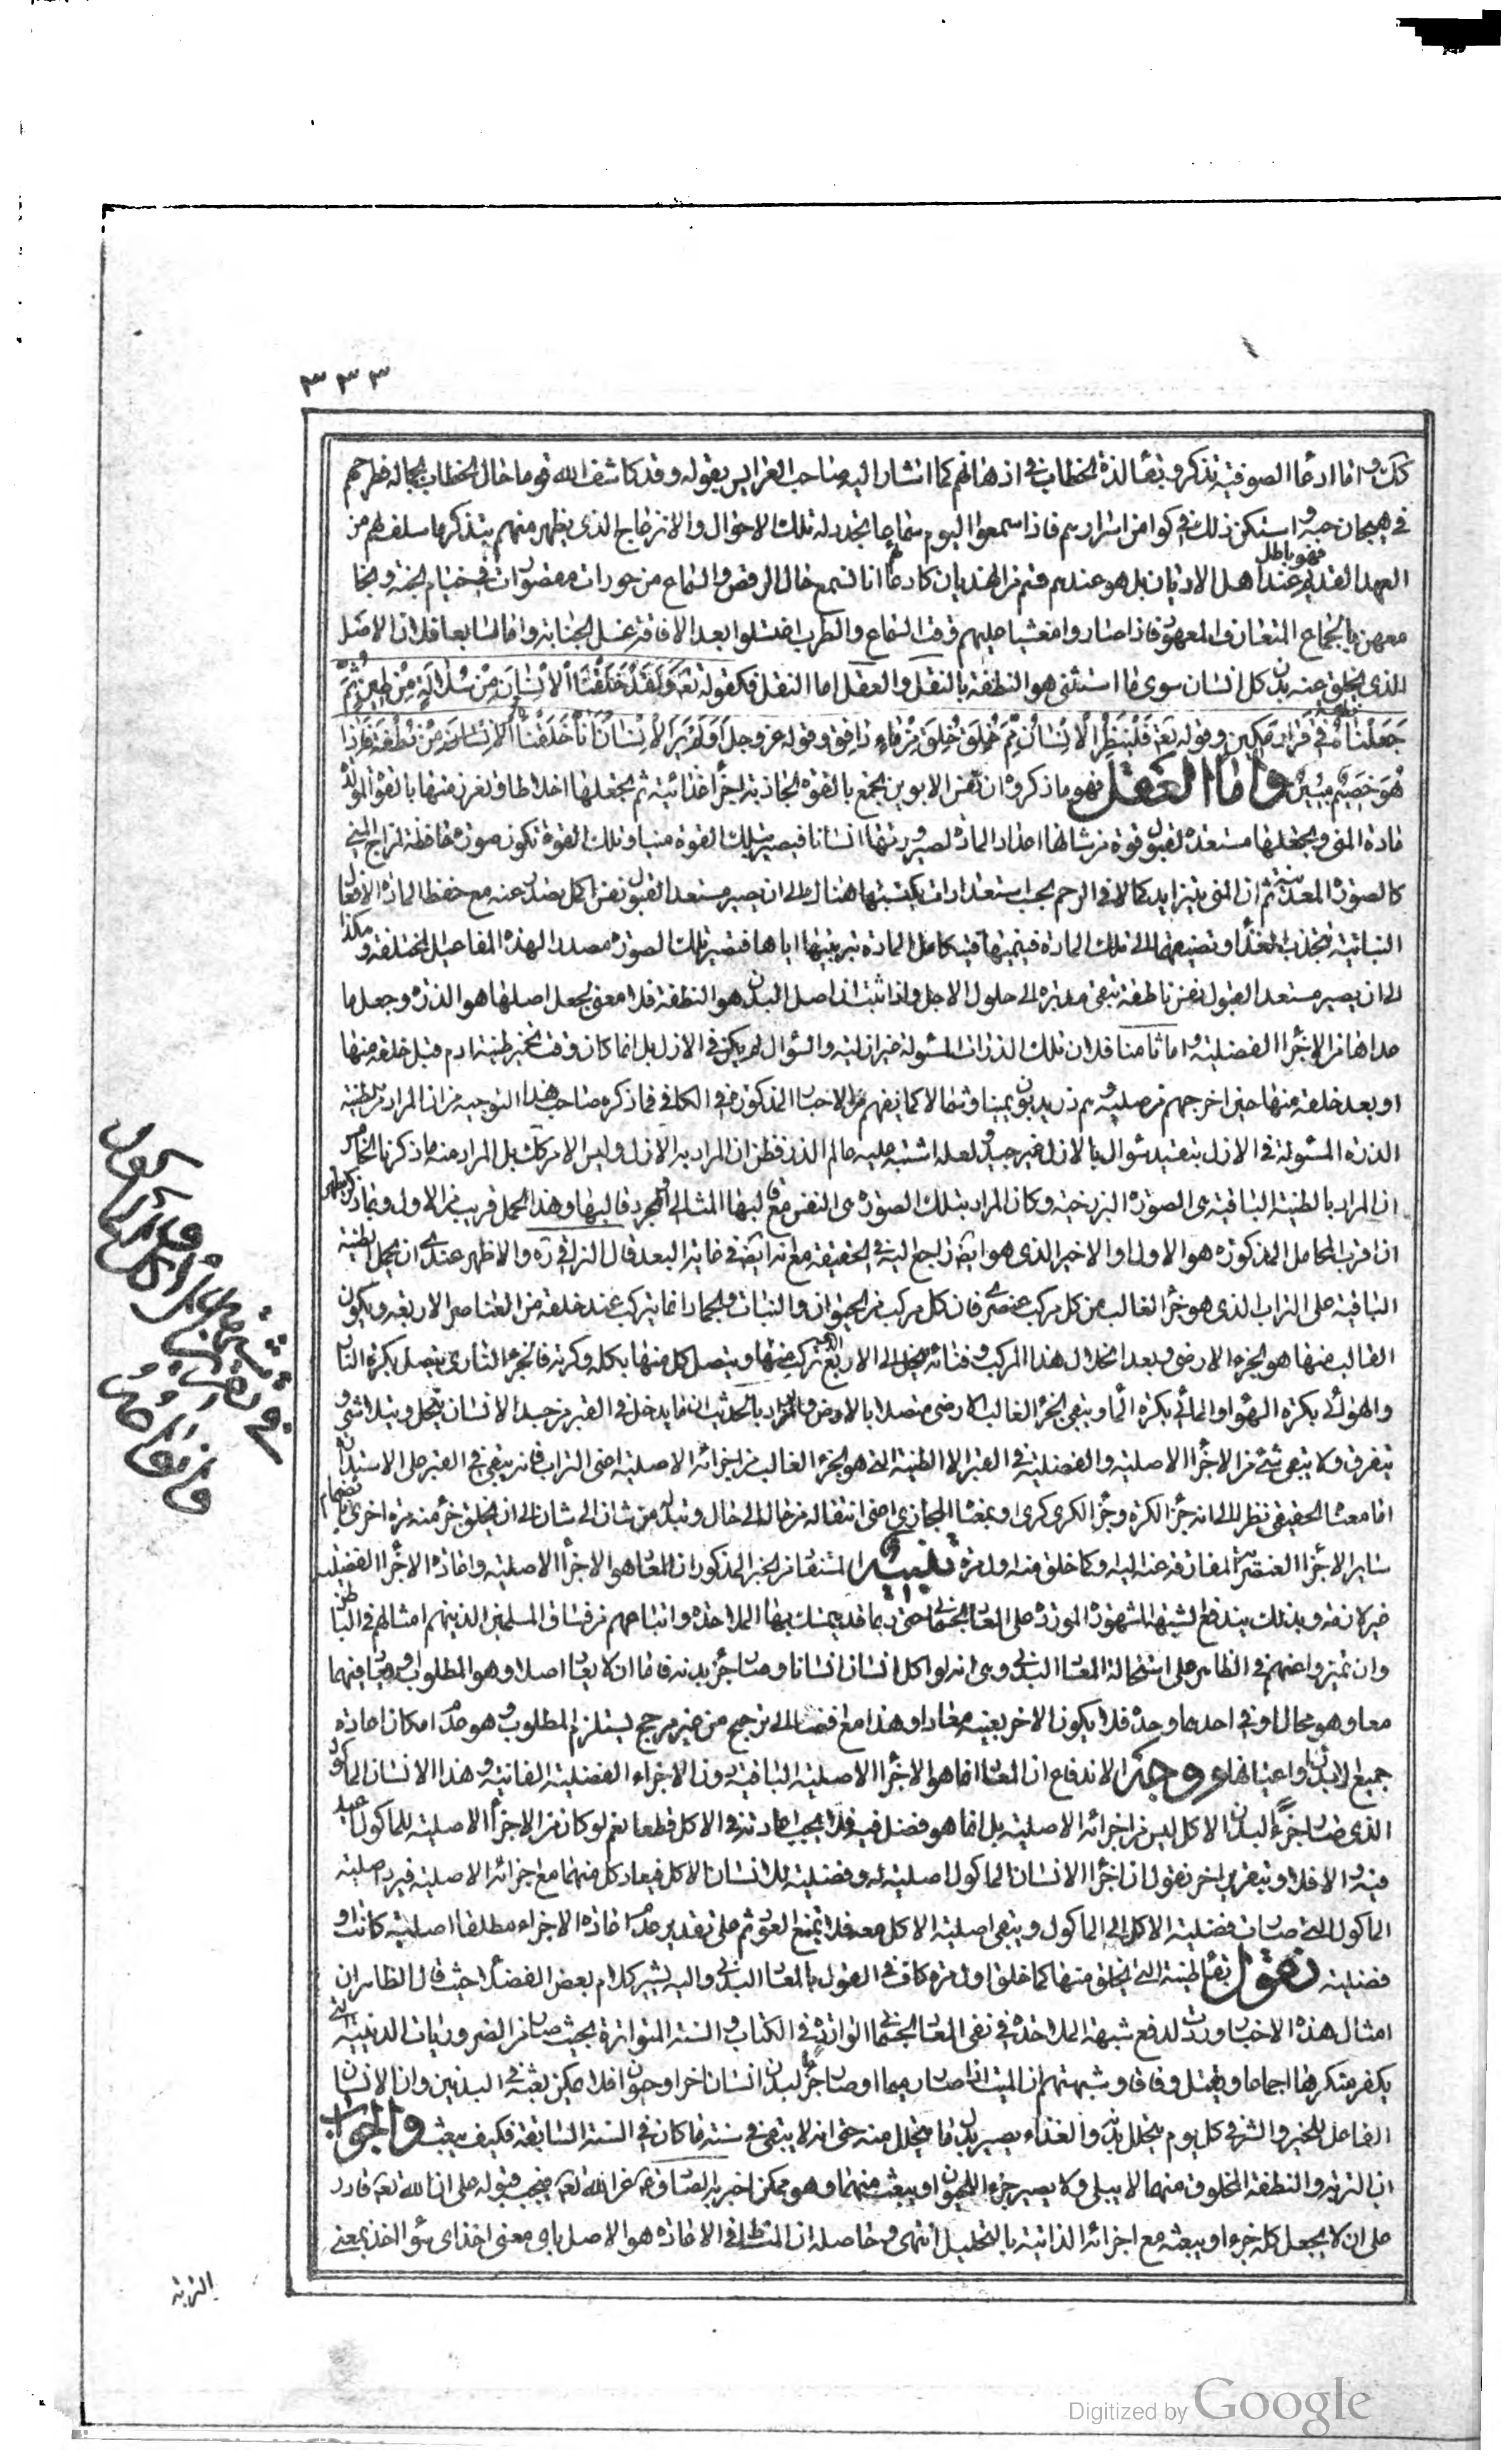 ٣٣٣
كك و اما ادعا الصوفية تذكر و بقا لذة الخطاب في اذهانهم كما اشار اليه صاحب العرايس بقوله وقد كاشف الله قوما حال الخطاب بجماله فطرحهم
في هيجان حبه و استكن ذلك في كوامن اسرارهم فاذا سمعوا اليوم سماعا تجدد له تلك الاحوال والانزعاج الذي يظهر منهم بتذكر ما سلف لهم من
فهو باطل
العهد القديم عند اهل الاديان بل هو عندهم قسم من الهذيان كادعا انا نسمع حال الرقص والسماع من حورات مقصورات في خيام الجنة و
معهن بالجماع المتعارف المعهود فاذا صاروا مغشيا عليهم وقت السماع والطرب اغتسلوا بعد الافاقة غسل الجنابة واما سابعا فلان الاصل
الذي يخلق عنه بدن كل انسان سوى ما استثنى هو النطفة بالنقل والعقل اما النقل فكقوله تعه وَلَقَدْ خَلَقْنَا الْاِنْسَانَ مِنْ سُلَالَةٍ مِنْ طِينٍ ثُمَّ
جَعَلْنَاهُ نطفة فِي قَرَارٍ مَكِينٍ وقوله تعه فَلْيَنْظُرِ الْاِنْسَانُ مِمَّ خُلِقَ خُلِقَ مِنْ مَاءٍ دَافِقٍ وقوله عز وجل اَوَلَمْ يَرَ الْاِنْسَانُ اَنَّا خَلَقْنَاهُ مِنْ نُطْفَةٍ فَاِذَا
هُوَ خَصِيمٌ مُبِينٌ واما العقل فهو ما ذكروه ان نفس الابوين يجمع بالقوة الجاذبة اجزاء غذائية ثم يجعلها اخلاطا و تفرز منها بالقوة المولدة
مادة المني و يجعلها مستعدة لقبول قوة من شانها اعداد المادة لصيرورتها انسانا فيصير بتلك القوة منيا وتلك القوة تكون صورة حافظة لمزاج المني
كالصورة المعدنية ثم ان المني يتزايد كمالا في الرحم بحسب استعدادات يكتسبها هناك الى ان يصير مستعدا لقبول نفس اكمل يصدر عنه مع حفظ المادة الافعال
النباتية فتجذب الغذاء و تضيفها الى تلك المادة فينميها فيتكامل المادة بتربيتها اياها فتصير تلك الصورة مصدرا لهذه المفاعيل المختلفة و هكذا
الى ان يصير مستعدا لقبول نفس ناطقة تبقى مدبرة الى حلول الاجل و اذا ثبت ان اصل البدن هو النطفة فلا معنى لجعل اصلها هو الذرة و جعل ما
عداها من الاجزاء الفضلية و اما ثامنا فلان تلك الذرات المسئولة غير ازلية والسؤال لم يكن في الازل بل انما كان وقت تخمير طينة ادم قبل خلقه منها
او بعد خلقه منها حين اخرجهم من صلبه و هم ذر يدبون يمينا وشمالا كما يفهم من الاخبار المذكورة في الكافي فما ذكره صاحب هذا التوجيه من ان المراد من طينة
الذرة المسئولة في الازل بتقييد سؤال بالازل غير جيد و لعله اشتبه عليه عالم الذر فظن ان المراد به الازل و ليس الامر كك بل المراد منه ما ذكرنا الخامس
ان المراد بالطينة الباقية هي الصورة البرزخية و كان المراد بتلك الصورة هي النفس مع قالبها المثالي او مجرد قالبها و هذا المحمل قريب من الاول و بما ذكر يظهر
ان اقرب المحامل المذكورة هو الاول و الاخير الذي هو ايضا راجع اليه في الحقيقة مع انه ايضا في غاية البعد قال النراقي ره والاظهر عندي ان يحمل الطينة
الباقية على التراب الذي هو جزء الغالب من كل مركب عنصري فان كل مركب من الحيوان والنبات والجماد انما يتركب عند خلقه من العناصر الاربعة و يكون
الغالب منها هو الجزء الارضي و بعد انحلال هذا المركب و فنائه ينحل الى الاربع التي تركب منها و يتصل كل منها بكله و كرته فالجزء الناري يتصل بكرة النار
والهوائي بكرة الهواء والمائي بكرة الماء و يبقى الجزء الغالب الارضي متصلا بالارض والمراد بالحديث ان ما يدخل في القبر من جسد الانسان يتحلل و يتلاشى و
يتفرق ولا يبقى شيء من الاجزاء الاصلية والفضلية في القبر الا الطينة التي هو الجزء الغالب من اجزائه الاصلية اعني التراب فانه يبقى في القبر على الاستدارة
اما معناه الحقيقي نظرا الى انه جزء الكرة و جزء الكري كري او بمعناه المجازي اعني انتقاله من حال الى حال و تبدله من شان الى شان الى ان يخلق جزء منه مرة اخرى بانضمام
ساير الاجزاء العنصرية المفارقة عنه اليه و كما خلق منه اول مرة تنبيه و المستفاد من الخبر المذكور ان المعاد هو الاجزاء الاصلية و اعادة الاجزاء الفضلية
غير لازمة و بذلك يندفع الشبهة المشهورة الموردة على المعاد الجسماني حتى ربما قد يتمسك بها الملاحدة و اتباعهم من فساق المسلمين الذين هم امثالهم في الباطن
و ان تميزوا عنهم في الظاهر على استحالة المعاد البدني و هي انه لو اكل انسان انسانا و صار جزء بدنه فاما ان لا يعاد اصلا و هو المطلوب او يعاد فيهما
معا و هو محال او في احدهما وحده فلا يكون الاخر بعينه معادا و هذا مع افضائه الى ترجيح من غير مرجح يستلزم المطلوب و هو عدم امكان اعادة
جميع الابدان باعيانها و وجه الاندفاع ان المعاد انما هو الاجزاء الاصلية الباقية دون الاجزاء الفضلية الفانية و هذا الانسان المأكول
الذي صار جزء لبدن الاكل ليس من اجزائه الاصلية بل انما هو فضل فيه فلا يجب اعادته في الاكل قطعا نعم لو كان من الاجزاء الاصلية للماكول اعيد
فيه و الا فلا و بتقرير اخر نقول ان اجزاء الانسان الماكول اصلية له و فضلية للانسان الاكل فيعاد كل منهما مع اجزائه الاصلية فيرد اصلية
الماكول التي صارت فضلية الاكل الى الماكول و يبقى اصلية الاكل معه فلا يمتنع العود ثم على تقدير عدم اعادة الاجزاء مطلقا اصلية كانت او
فضلية نقول بقاء طينة التي يخلق منها كما خلق اول مرة كاف في القول بالمعاد البدني واليه يشير كلام بعض الفضلاء حيث قال الظاهر ان
امثال هذه الاخبار وردت لدفع شبهة الملاحدة في نفي المعاد الجسماني الواردة في الكتاب و السنة المتواترة بحيث صار من الضروريات الدينية التي
يكفر منكرها اجماعا و يقتل وفاقا و شبهتهم ان الميت اذا صار رميما او صار جزء لبدن انسان اخر او حيوان فلا يمكن بعثه في البدنين و ان الانسان
الفاعل للخير والشر في كل يوم يتحلل بدنه والغذاء يصير بدل ما يتحلل منه حتى انه لا يبقى في سنة ما كان في السنة السابقة فكيف يبعث والجواب
ان التربة والنطفة المخلوق منهما لا يبلى ولا يصير جزء الحيوان او يبعث منهما و هو ممكن اخبر به الصادق ع عن الله تعه فيجب قبوله على ان الله تعه قادر
على ان لا يجعل كله جزء او يبعثه مع اجزائه الذاتية بالتحليل انتهى و حاصله ان المناط في الاعادة هو الاصل باي معنى اخذ اي سواء اخذ بمعنى
التربة
Digitized by Google